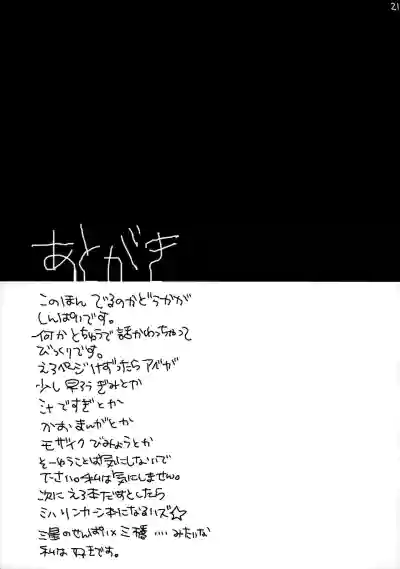 21
あとがき
このほん でるのかどうかが
しんぱいです。
何か とちゅうで 話かわっちゃって
びっくりです。
えろページけずったらアベが
少し 早ろうぎみとか
汁ですぎとか
かおまんがとか
モザイクびみょうとか
そーゆうことは気にしないで
下さい。私は気にしません。
次にえろ本だすとしたら
ミハリンカーン本になるハズ☆
三星のせんぱい×三橋 ‥‥みたいな
私は 好きです。